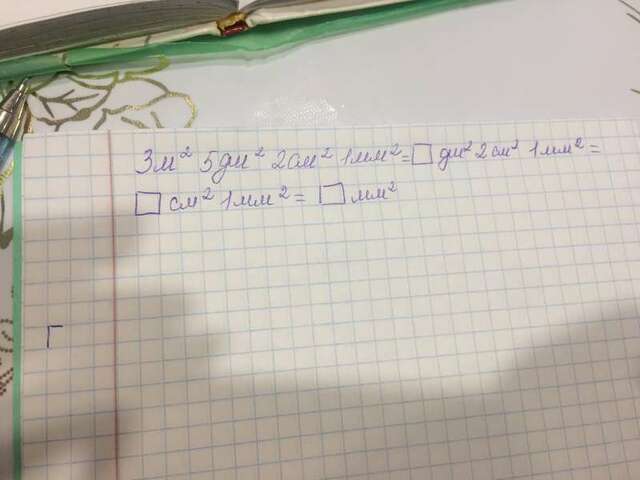 3м² 5дм² 2см² 1мм²=□ дм² 2см² 1мм²=
□ см² 1мм²= □ мм²
Г